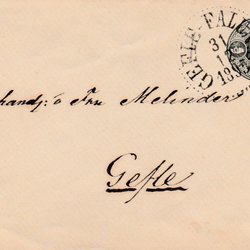 GEFLE-FALU
31
handl: o Fru Melinder
Gefle